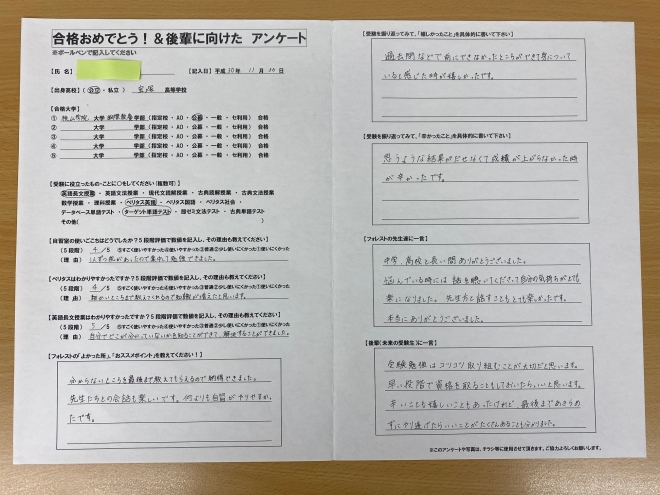 合格おめでとう！＆後輩に向けた アンケート
※ボールペンで記入してください
【氏 名】
【記入日】平成 30年 11月 30日
【出身高校】（公立・私立） 宝塚 高等学校
【合格大学】
① 桃山学院 大学 国際教養 学部（指定校・AO・公募・一般・セ利用） 合格
② 大学 学部（指定校・AO・公募・一般・セ利用） 合格
③ 大学 学部（指定校・AO・公募・一般・セ利用） 合格
④ 大学 学部（指定校・AO・公募・一般・セ利用） 合格
⑤ 大学 学部（指定校・AO・公募・一般・セ利用） 合格
【受験に役立ったもの・ことに○をしてください（複数可）】
英語長文授業・英語文法授業・現代文読解授業・古典読解授業・古典文法授業
数学授業・理科授業・ベリタス英語・ベリタス国語・ベリタス社会・
データベース単語テスト・ターゲット単語テスト・即ゼミ文法テスト・古典単語テスト
その他（ ）
【自習室の使いごこちはどうでしたか？5段階評価で数値を記入し、その理由も教えてください】
（5段階） 4 ／5 ⑤すごく使いやすかった④使いやすかった③普通②少し使いにくかった①使いにくかった
（理由） いつも席があったので集中して勉強できました。
【ベリタスはわかりやすかったですか？5段階評価で数値を記入し、その理由も教えてください】
（5段階） 4 ／5
（理由） 細かいところまで教えてくれるので知識が増えたと思います。
【英語長文授業はわかりやすかったですか？5段階評価で数値を記入し、その理由も教えてください】
（5段階） 5 ／5
（理由） 自分でどこが分かっていないかを知ることができて、解決することができました。
【フォレストの「よかった所」、「おススメポイント」を教えてください！】
分からないところを最後まで教えてもらえるので納得できました。
先生たちとの会話も楽しいです。何よりも自習がやりやすかっ
たです。
【受験を振り返ってみて、「嬉しかったこと」を具体的に書いて下さい】
過去問などで前にできなかったところができて身について
いると感じた時が嬉しかったです。
【受験を振り返ってみて、「辛かったこと」を具体的に書いて下さい】
思うような結果がだせなくて成績が上がらなかった時
が辛かったです。
【フォレストの先生達に一言】
中学、高校と長い間ありがとうございました。
悩んでいる時には話を聴いてくださって自分の気持ちがとても
楽になりました。先生方と話すこともとても楽しかったです。
本当にありがとうございました。
【後輩（未来の受験生）に一言】
受験勉強はコツコツ取り組むことが大切だと思います。
早い段階で資格を取ることもしておいたらいいと思います。
辛いことも嬉しいこともあったけれど、最後まであきらめ
ずにやり遂げたらいいことがたくさんあることも分かりました。
※このアンケートや写真は、チラシ等に使用させて頂きます。ご協力よろしくお願いします。